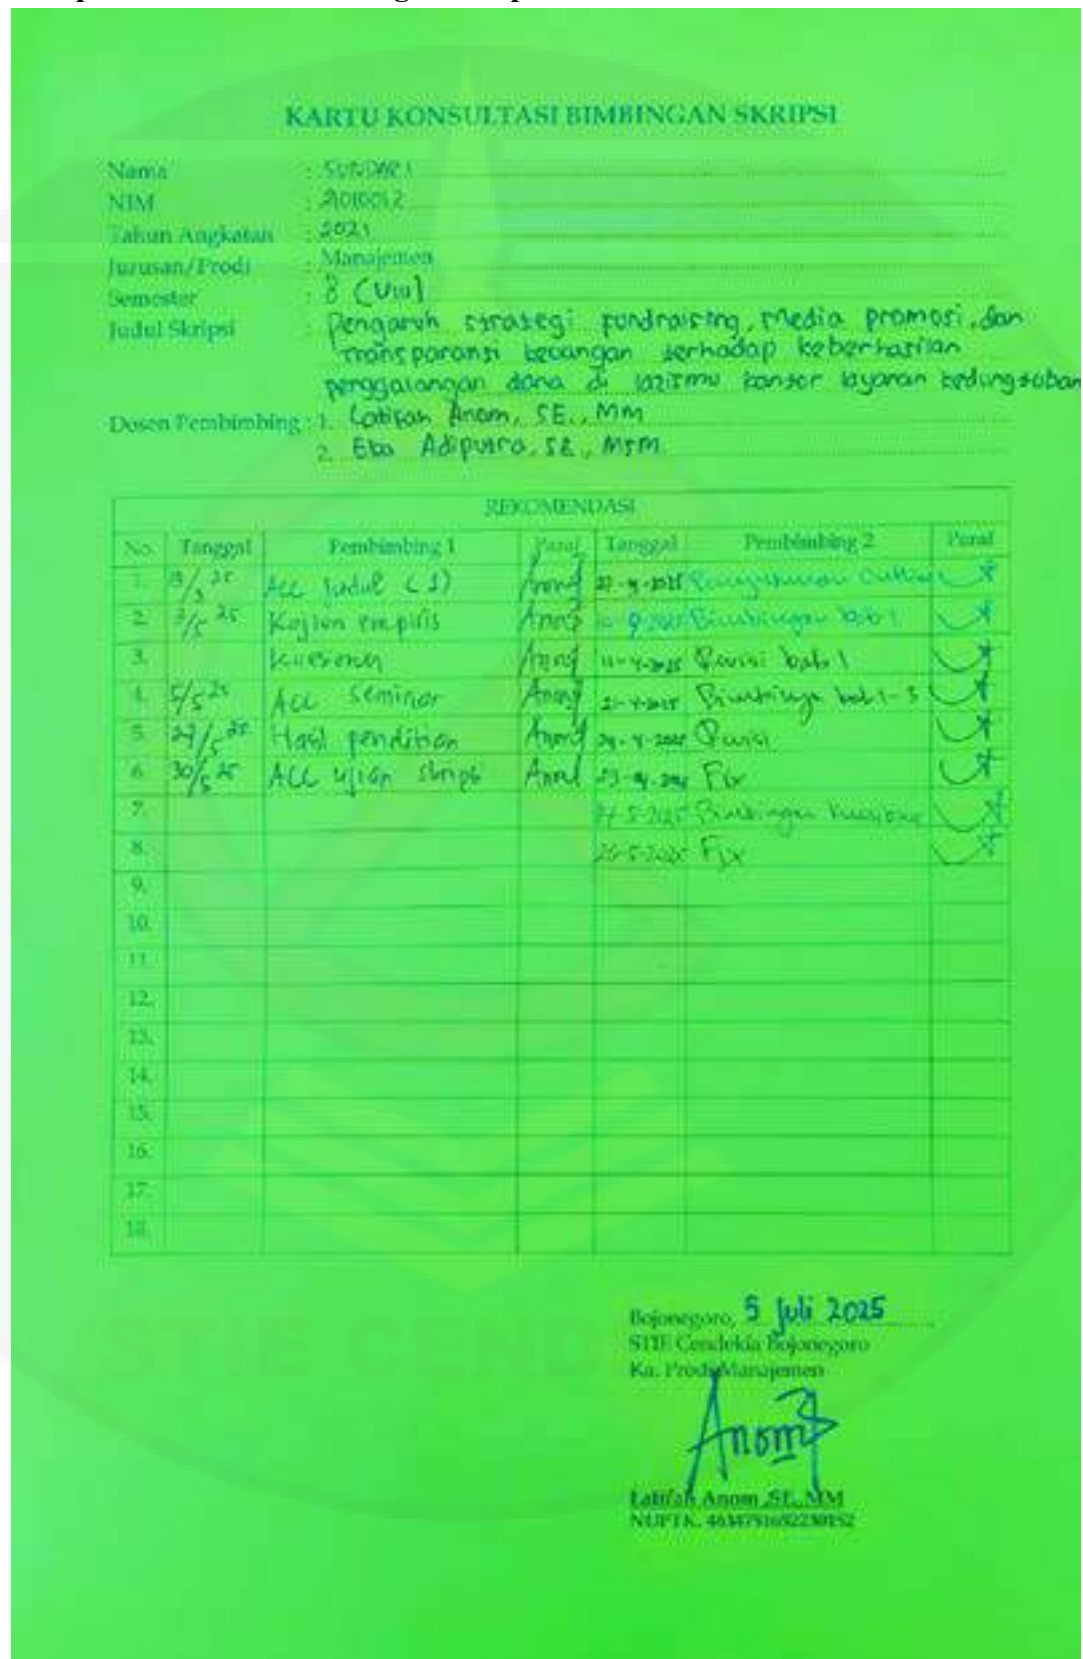 KARTU KONSULTASI BIMBINGAN SKRIPSI
Nama : SUNDARI
NIM : 21010012
Tahun Angkatan : 2021
Jurusan/Prodi : Manajemen
Semester : 8 (VIII)
Judul Skripsi : Pengaruh strategi fundraising, media promosi, dan
transparansi keuangan terhadap keberhasilan
penggalangan dana di lazismu kantor layanan kedungadem
Dosen Pembimbing : 1. Latifah Anom, SE., MM
2. Eka Adiputra, SE., MSM
REKOMENDASI
No. Tanggal Pembimbing 1 Paraf Tanggal Pembimbing 2 Paraf
1. Acc judul (1) Anom
2. Kajian empiris Anom Bimbingan bab 1
3. Kuesioner Anom Revisi bab 1
4. 5/5 25 Acc Seminar Anom Bimbingan bab 1-3
5. 27/5 25 Hasil penelitian Anom Revisi
6. 30/5 25 ACC ujian skripsi Anom Fix
7. Bimbingan
8. 26-5-2025 Fix
9.
10.
11.
12.
13.
14.
15.
16.
17.
18.
Bojonegoro, 5 Juli 2025
STIE Cendekia Bojonegoro
Ka. Prodi Manajemen
Anom
Latifah Anom, SE., MM
NUPTK.
STIE CEND